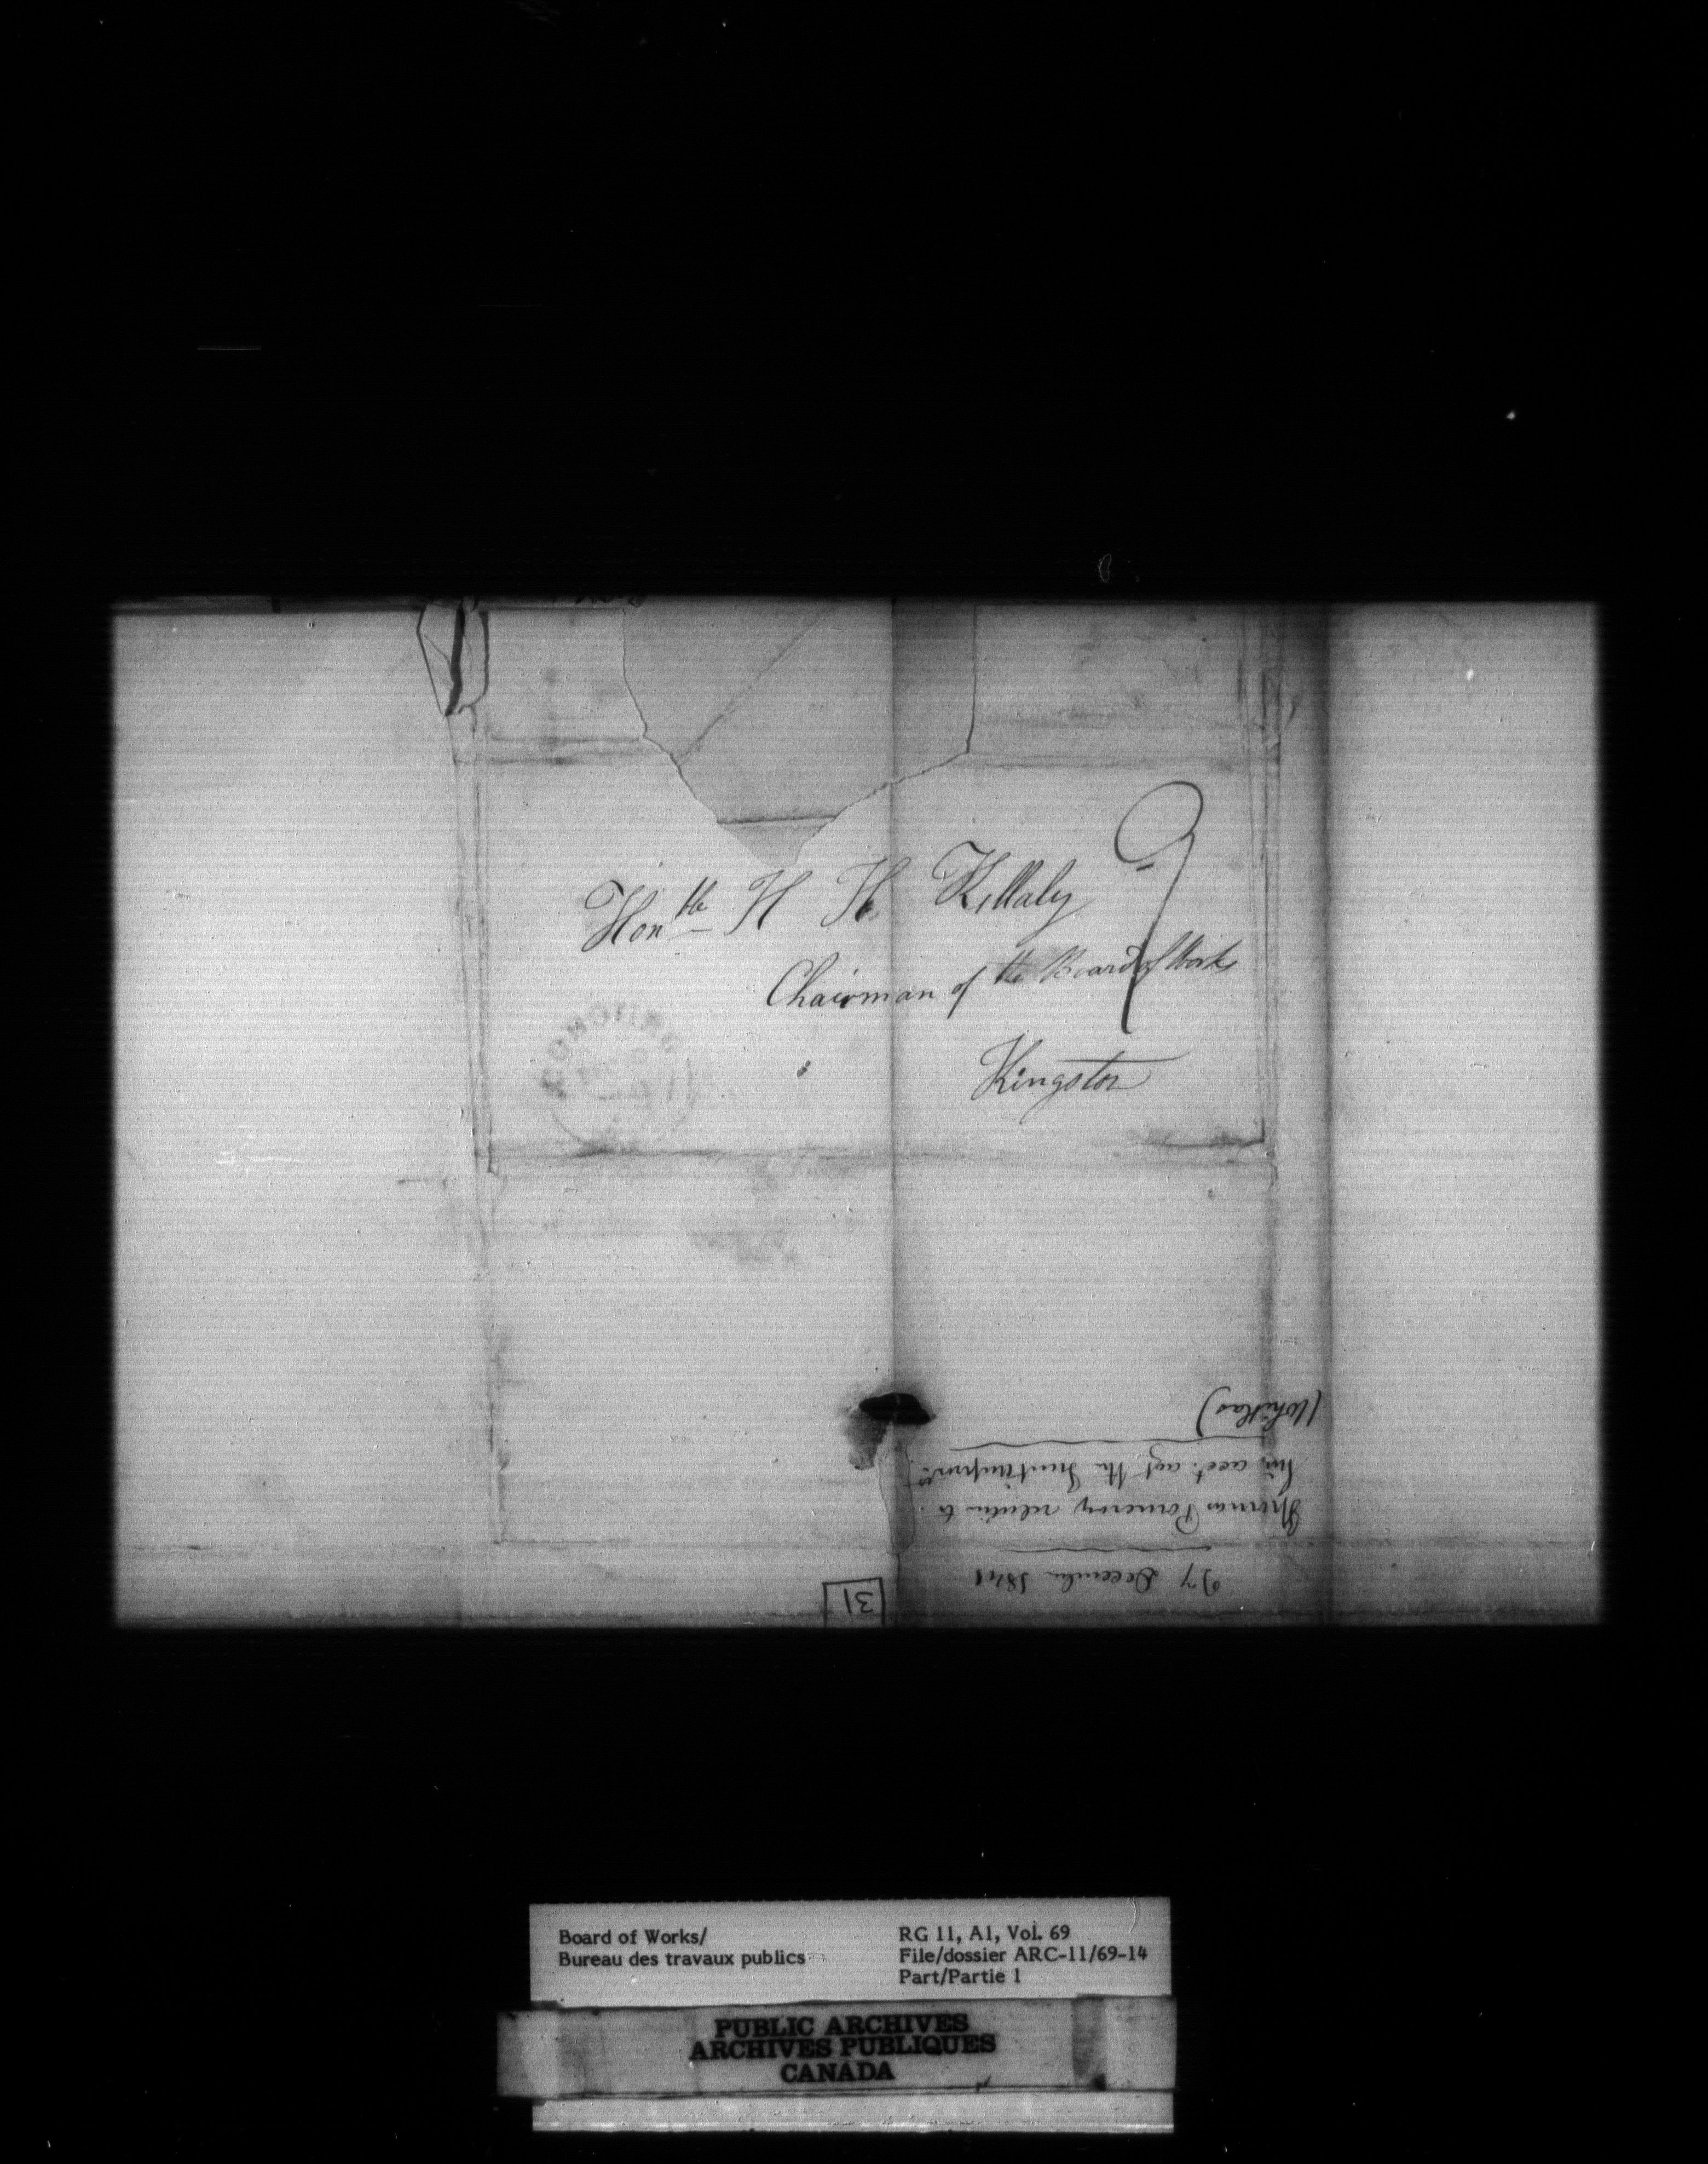 Honble H H Killaly
9
Chairman of the Board of Works
Kingston
31
7 December 1841
Thomas Pomeroy relative to
his acct. agt the
Board of Works/
Bureau des travaux publics
RG 11, A1, Vol. 69
File/dossier ARC-11/69-14
Part/Partie 1
PUBLIC ARCHIVES
ARCHIVES PUBLIQUES
CANADA